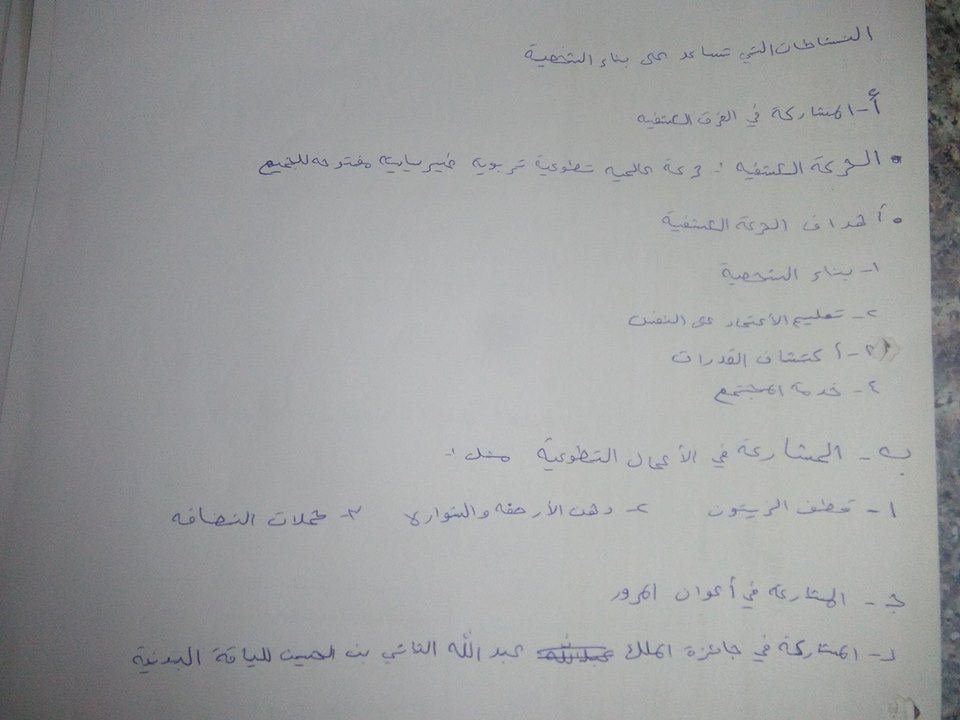 النشاطات التي تساعد على بناء الشخصية
أ- المشاركة في الفرق الكشفيه
• الحركة الكشفيه : حركة عالميه تطوعية تربويه غير سياسيه مفتوحه للجميع
• أهداف الحركة الكشفية
١- بناء الشخصية
٢- تعليم الأعتماد على النفس
٣- أكتشاف القدرات
٤- خدمة المجتمع
ب- المشاركة في الأعمال التطوعية مثل :
١- قطف الزيتون ٢- دهن الأرصفه والشوارع ٣- حملات النضافه
ج- المشاركة في أعوان المرور
د- المشاركة في جائزة الملك عبدالله عبد الله الثاني بن الحسين للياقة البدنية